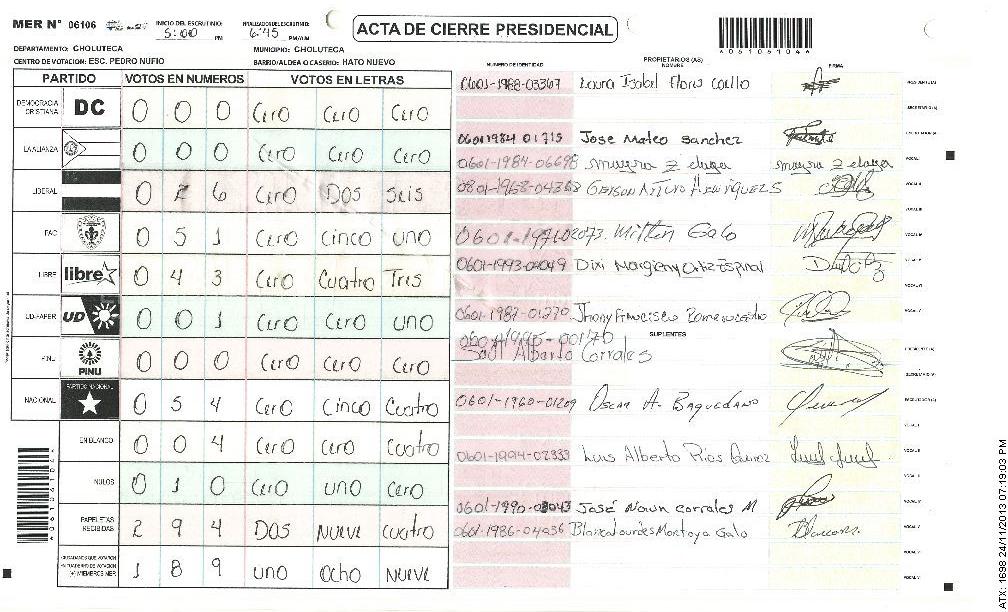 MER N° 06106 INICIO DEL ESCRUTINIO: 5:00 PM FINALIZACION DEL ESCRUTINIO: 6:45 PM/AM
ACTA DE CIERRE PRESIDENCIAL
DEPARTAMENTO: CHOLUTECA MUNICIPIO: CHOLUTECA
CENTRO DE VOTACION: ESC. PEDRO NUFIO BARRIO/ALDEA O CASERIO: HATO NUEVO
NUMERO DE IDENTIDAD PROPIETARIOS (AS) NOMBRE FIRMA
PARTIDO VOTOS EN NUMEROS VOTOS EN LETRAS
DEMOCRACIA CRISTIANA DC 0 0 0 Cero Cero Cero
LA ALIANZA 0 0 0 Cero Cero Cero
LIBERAL 0 2 6 Cero Dos Seis
PAC 0 5 1 Cero Cinco uno
LIBRE libre 0 4 3 Cero Cuatro Tres
UD-FAPER UD 0 0 1 Cero Cero uno
PINU PINU 0 0 0 Cero Cero Cero
NACIONAL PARTIDO NACIONAL 0 5 4 Cero Cinco Cuatro
EN BLANCO 0 0 4 Cero Cero Cuatro
NULOS 0 1 0 Cero uno Cero
PAPELETAS RECIBIDAS 2 9 4 Dos Nueve Cuatro
CIUDADANOS QUE VOTARON EN CUADERNO DE VOTACION (+) MIEMBROS MER 1 8 9 uno Ocho Nueve
0601-1988-03367 Laura Isabel Flores
0601 1984 01715 Jose Mateo Sanchez
0601-1984-06698 mayra z elaya mayra z elaya
0801-1968-04368 Gerson Arturo Henriquez S
Milton Galo
0601-1993-04049 Dixi Margieny Ortiz Espinal
0601-1987-01270 Jhony Francisco
SUPLENTES
Saul Alberto Corrales
0601-1960-01209 Oscar A. Baquedano
0601-1994-02333 Luis Alberto Rios
José Nown Corrales M
0601-1986-04036 Blanca Lourdes Montoya Galo
4061061044
ATX: 1698 24/11/2013 07:19:03 PM